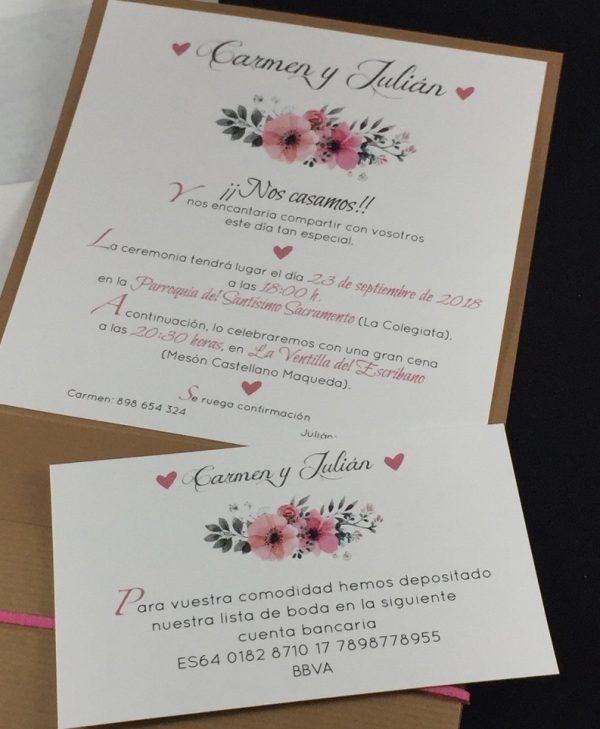 Carmen y Julián
¡¡Nos casamos!!
Y nos encantaría compartir con vosotros
este día tan especial.
La ceremonia tendrá lugar el día 23 de septiembre de 2018
a las 18:00 h.
en la Parroquia del Santísimo Sacramento (La Colegiata).
A continuación, lo celebraremos con una gran cena
a las 20:30 horas, en La Ventilla del Escribano
(Mesón Castellano Maqueda).
Se ruega confirmación
Carmen: 898 654 324
Julián:
Carmen y Julián
Para vuestra comodidad hemos depositado
nuestra lista de boda en la siguiente
cuenta bancaria
ES64 0182 8710 17 7898778955
BBVA